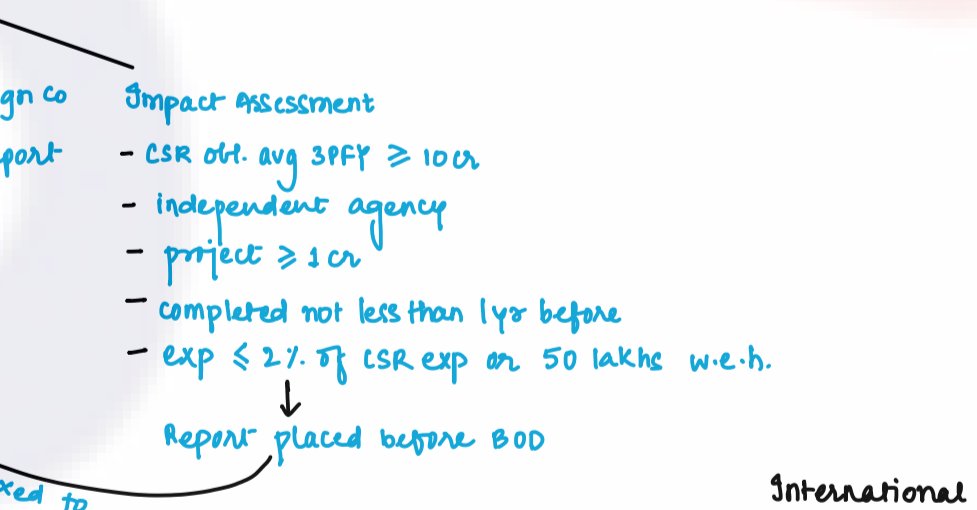 gn co
port
Impact Assessment
- CSR obl. avg 3PFY ≥ 10 cr
- independent agency
- project ≥ 1 cr
- completed not less than 1 yr before
- exp ≤ 2% of CSR exp or 50 lakhs w.e.h.
↓
Report placed before BOD
xed to
International